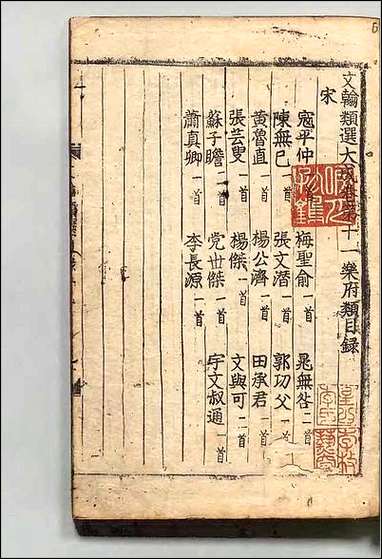 文翰類選大成卷第十一 樂府類目録
宋
寇平仲一首 梅聖俞一首 晁無咎二首
陳無已一首 張文潛一首 郭功父一首
黄魯直一首 楊公濟一首 田承君一首
張芸叟一首 楊傑一首 文與可二首
蘇子瞻二首 党世傑一首 宇文叔通一首
蕭真卿一首 李長源一首